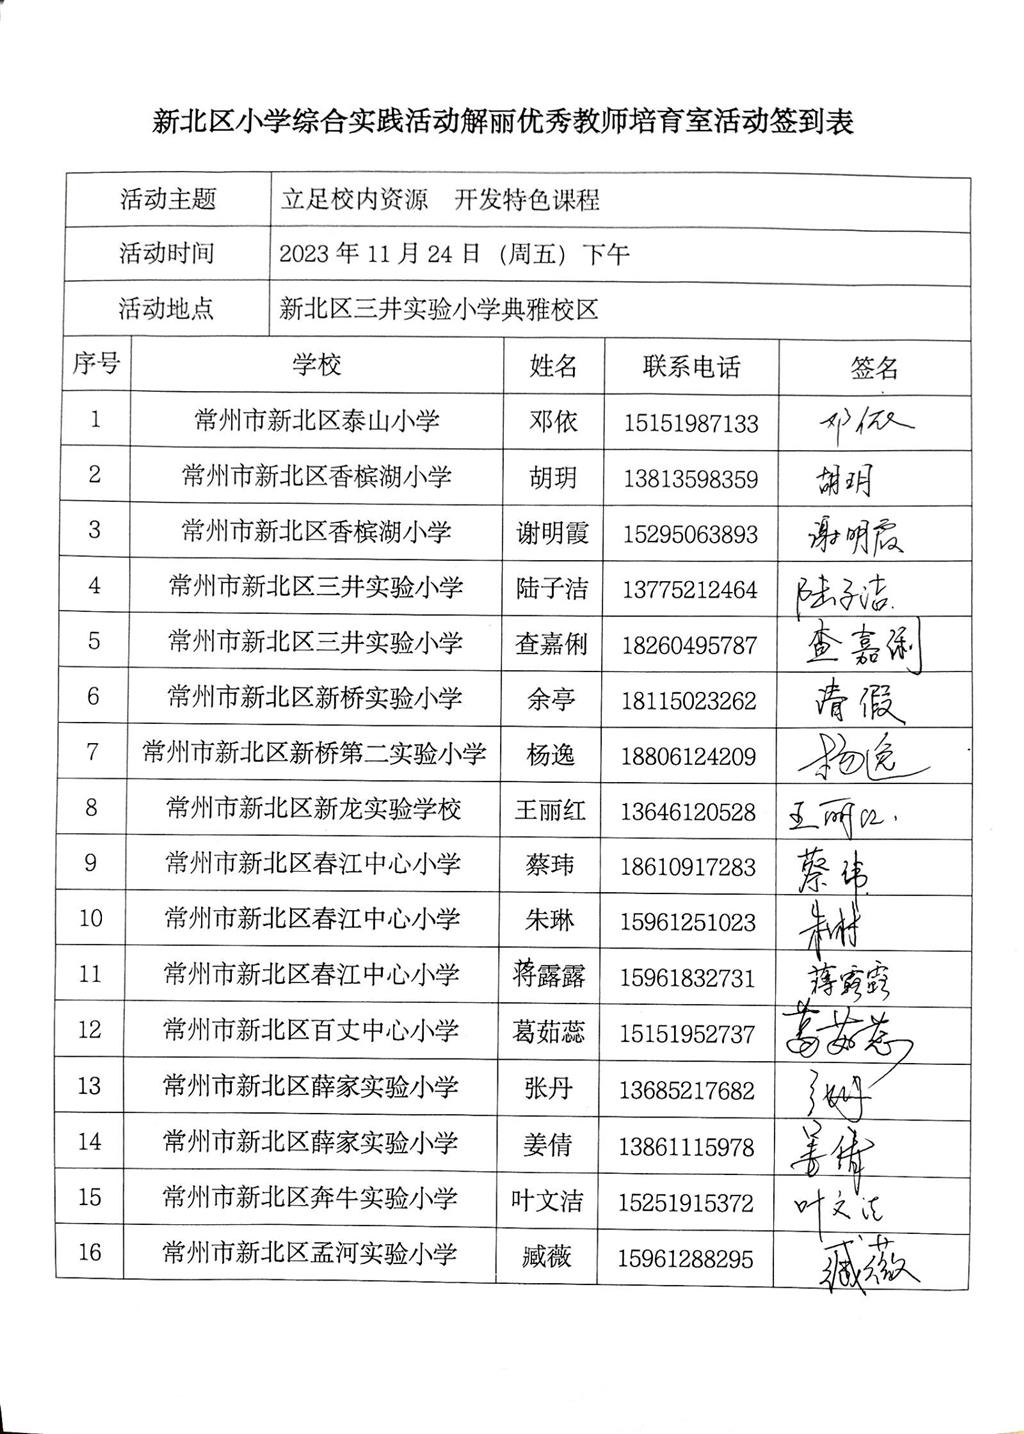 新北区小学综合实践活动解丽优秀教师培育室活动签到表
活动主题 立足校内资源 开发特色课程
活动时间 2023 年 11 月 24 日（周五）下午
活动地点 新北区三井实验小学典雅校区
序号 学校 姓名 联系电话 签名
1 常州市新北区泰山小学 邓依 15151987133 邓依
2 常州市新北区香槟湖小学 胡玥 13813598359 胡玥
3 常州市新北区香槟湖小学 谢明霞 15295063893 谢明霞
4 常州市新北区三井实验小学 陆子洁 13775212464 陆子洁
5 常州市新北区三井实验小学 查嘉俐 18260495787 查嘉俐
6 常州市新北区新桥实验小学 余亭 18115023262 请假
7 常州市新北区新桥第二实验小学 杨逸 18806124209 杨逸
8 常州市新北区新龙实验学校 王丽红 13646120528 王丽红
9 常州市新北区春江中心小学 蔡玮 18610917283 蔡玮
10 常州市新北区春江中心小学 朱琳 15961251023 朱琳
11 常州市新北区春江中心小学 蒋露露 15961832731 蒋露露
12 常州市新北区百丈中心小学 葛茹蕊 15151952737 葛茹蕊
13 常州市新北区薛家实验小学 张丹 13685217682 张丹
14 常州市新北区薛家实验小学 姜倩 13861115978 姜倩
15 常州市新北区奔牛实验小学 叶文洁 15251915372 叶文洁
16 常州市新北区孟河实验小学 臧薇 15961288295 臧薇